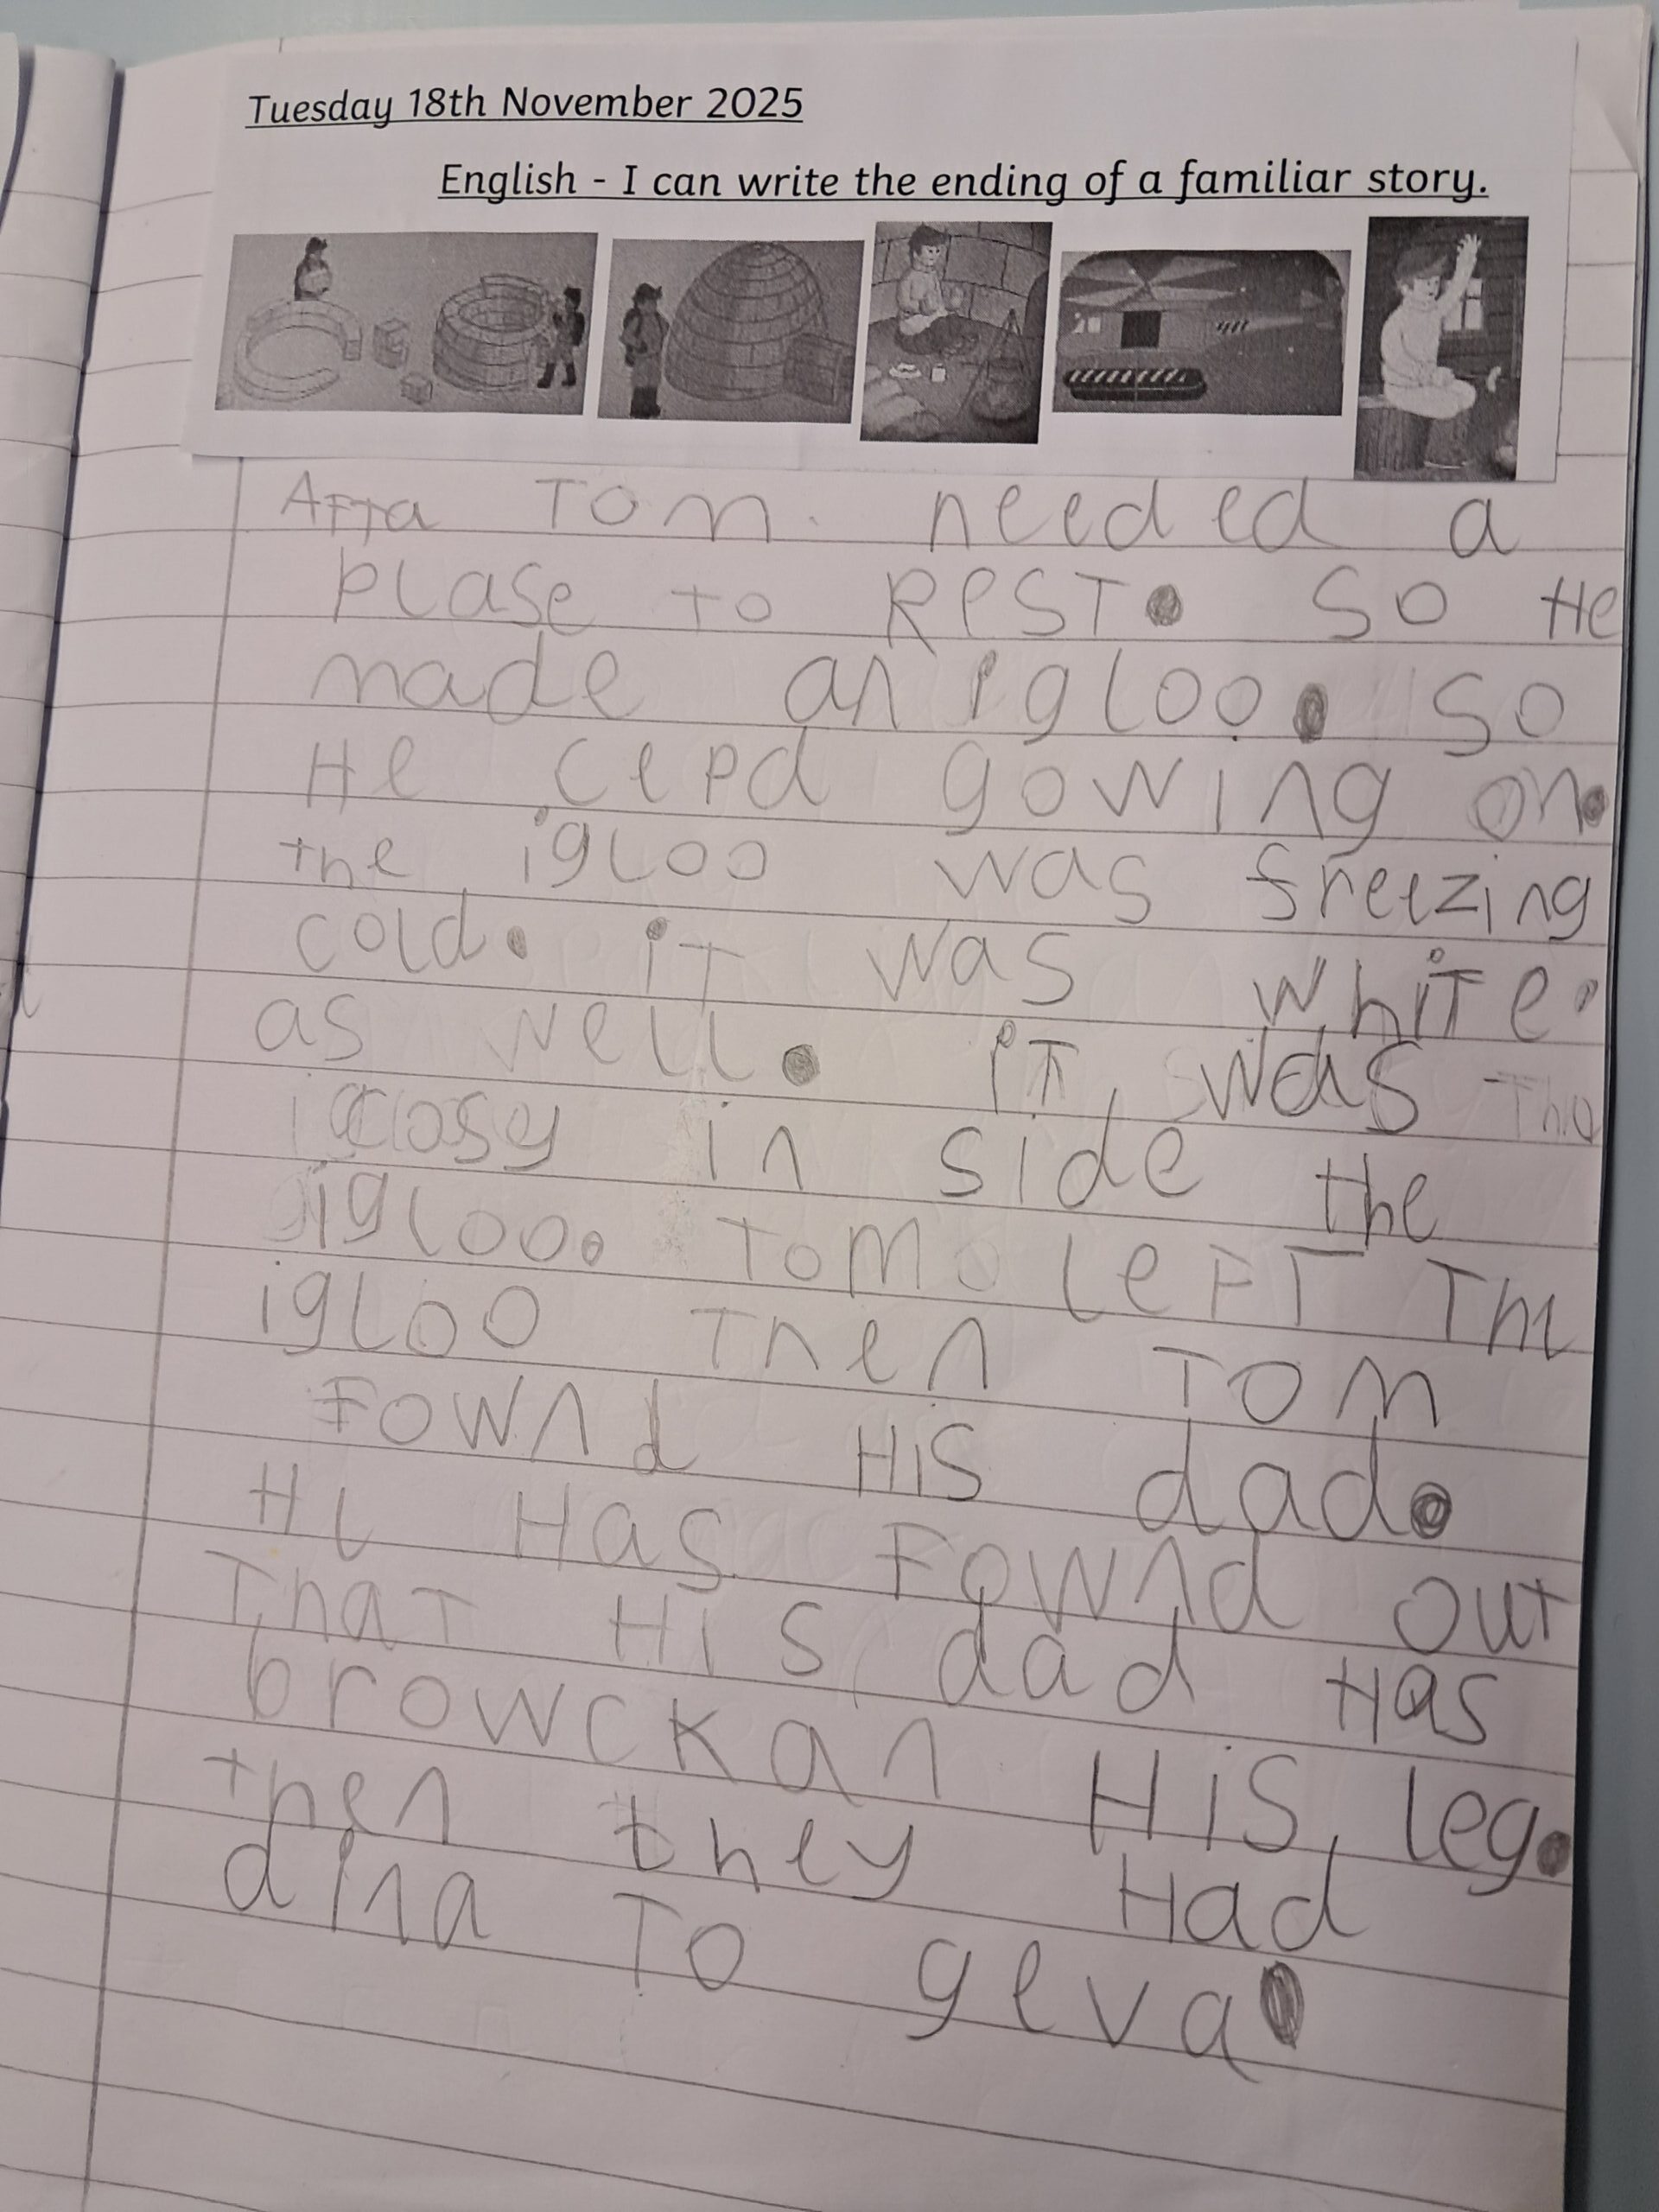 Tuesday 18th November 2025
English - I can write the ending of a familiar story.
Afta Tom needed a
plase to Rest. So He
made an igloo. So
He cepd gowing on.
the igloo was freezing
cold. it was white.
as well. it was
cosy in side the
igloo. Tom left The
igloo Then Tom
Fownd His dad.
He Has Fownd out
That His dad Has
browckan His leg.
then they Had
dina To geva.